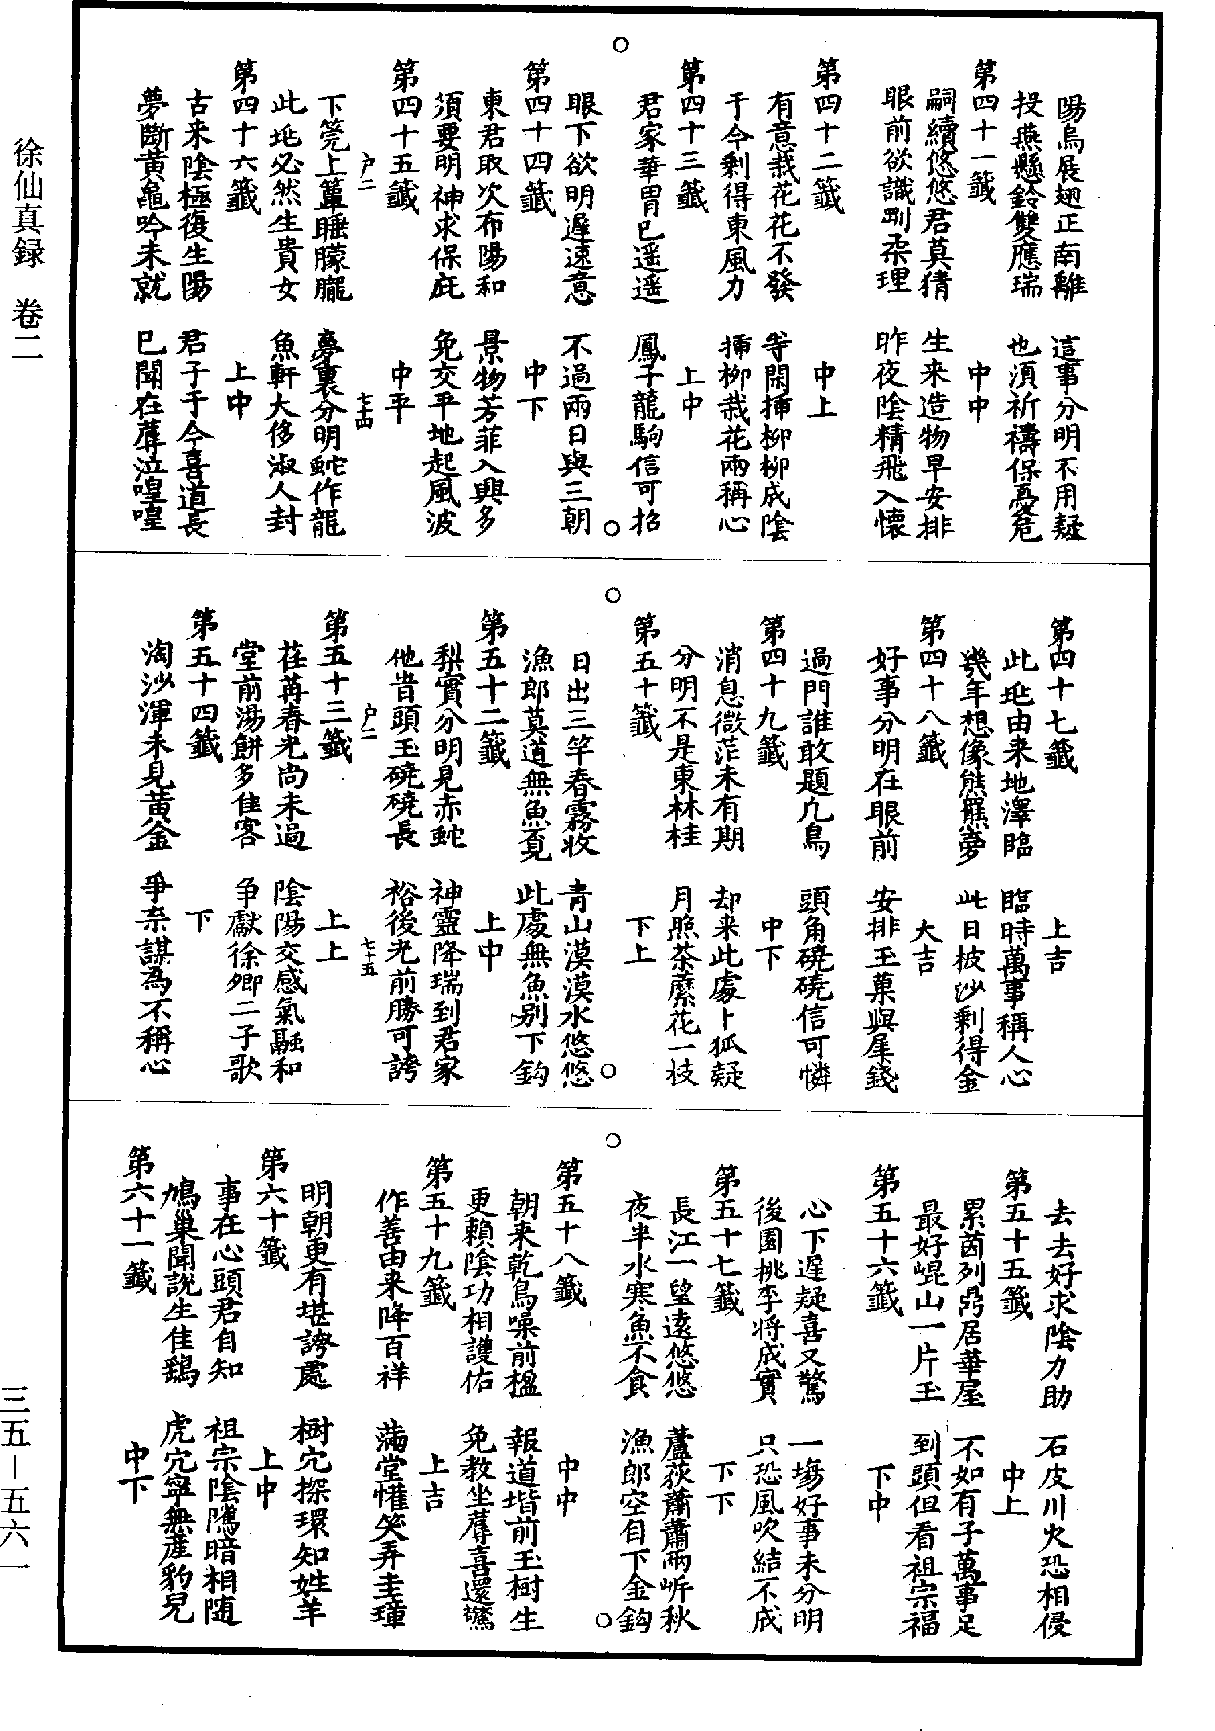 徐仙真録　卷二
陽烏展翅正南離　這事分明不用疑
投燕懸鈴雙應瑞　也須祈禱保憂危
第四十一籤　中中
嗣續悠悠君莫猜　生来造物早安排
眼前欲識剛柔理　昨夜陰精飛入懷
第四十二籤　中上
有意栽花花不發　等閑揷柳柳成陰
于今剩得東風力　揷柳栽花兩稱心
第四十三籤　上中
君家華胄已遥遥　鳳子龍駒信可招
眼下欲明遲速意　不過兩日與三朝
第四十四籤　中下
東君取次布陽和　景物芳菲入興多
須要明神求保庇　免交平地起風波
第四十五籤　中平
戶二　七十四
下筦上簟睡朦朧　夢裏分明蛇作龍
此地必然生貴女　魚軒大侈淑人封
第四十六籤　上中
古来陰極復生陽　君子于今喜道長
夢斷黄龜吟未就　已聞在蓐泣喤喤
第四十七籤　上吉
此地由来地澤臨　臨時萬事稱人心
幾年想像熊羆夢　此日披沙剩得金
第四十八籤　大吉
好事分明在眼前　安排玉菓與犀錢
過門誰敢題凢鳥　頭角磽磽信可憐
第四十九籤　中下
消息微茫未有期　却来此處卜狐疑
分明不是東林桂　月照荼蘼花一枝
第五十籤　下上
日出三竿春霧收　青山漠漠水悠悠
漁郎莫道無魚覔　此處無魚别下鈎
第五十二籤　上中
梨實分明見赤蛇　神靈降瑞到君家
他昔頭玉磽磽長　裕後光前勝可誇
戶二　七十五
第五十三籤　上上
荏苒春光尚未過　陰陽交感氣融和
堂前湯餅多佳客　争獻徐卿二子歌
第五十四籤　下
淘沙渾未見黄金　爭柰謀為不稱心
去去好求陰力助　石皮川火恐相侵
第五十五籤　中上
累茵列鼎居華屋　不如有子萬事足
最好崐山一片玉　到頭但看祖宗福
第五十六籤　下中
心下遲疑喜又驚　一塲好事未分明
後園桃李將成實　只恐風吹結不成
第五十七籤　下下
長江一望遠悠悠　蘆荻蕭蕭兩岍秋
夜半水寒魚不食　漁郎空自下金鈎
第五十八籤　中中
朝来乾鳥噪前楹　報道堦前玉樹生
更賴陰功相護佑　免教坐蓐喜還驚
第五十九籤　上吉
作善由来降百祥　滿堂懽笑弄圭璋
明朝更有堪誇處　樹穴探環知姓羊
第六十籤　上中
事在心頭君自知　祖宗陰隲暗相随
鳩巢聞說生佳鷄　虎穴寧無產豹兒
第六十一籤　中下
三五－五六一